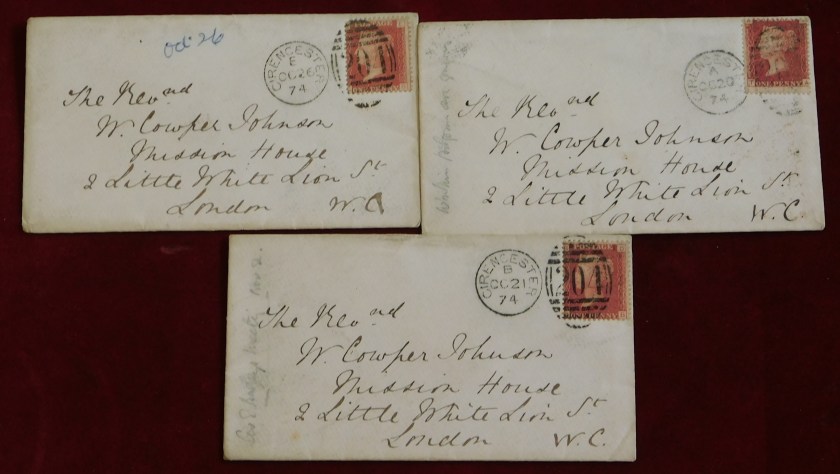 Oct 26
CIRENCESTER
B
OC 26
74
201
The Revnd
W. Cowper Johnson
Mission House
2 Little White Lion St
London W.C
CIRENCEST
A
OC 20
74
ONE PENNY
The Revnd
W. Cowper Johnson
Mission House
2 Little White Lion St
London W.C.
CIRENCESTER
B
OC 21
74
POSTAGE
201
The Revnd
W. Cowper Johnson
Mission House
2 Little White Lion St
London W.C.